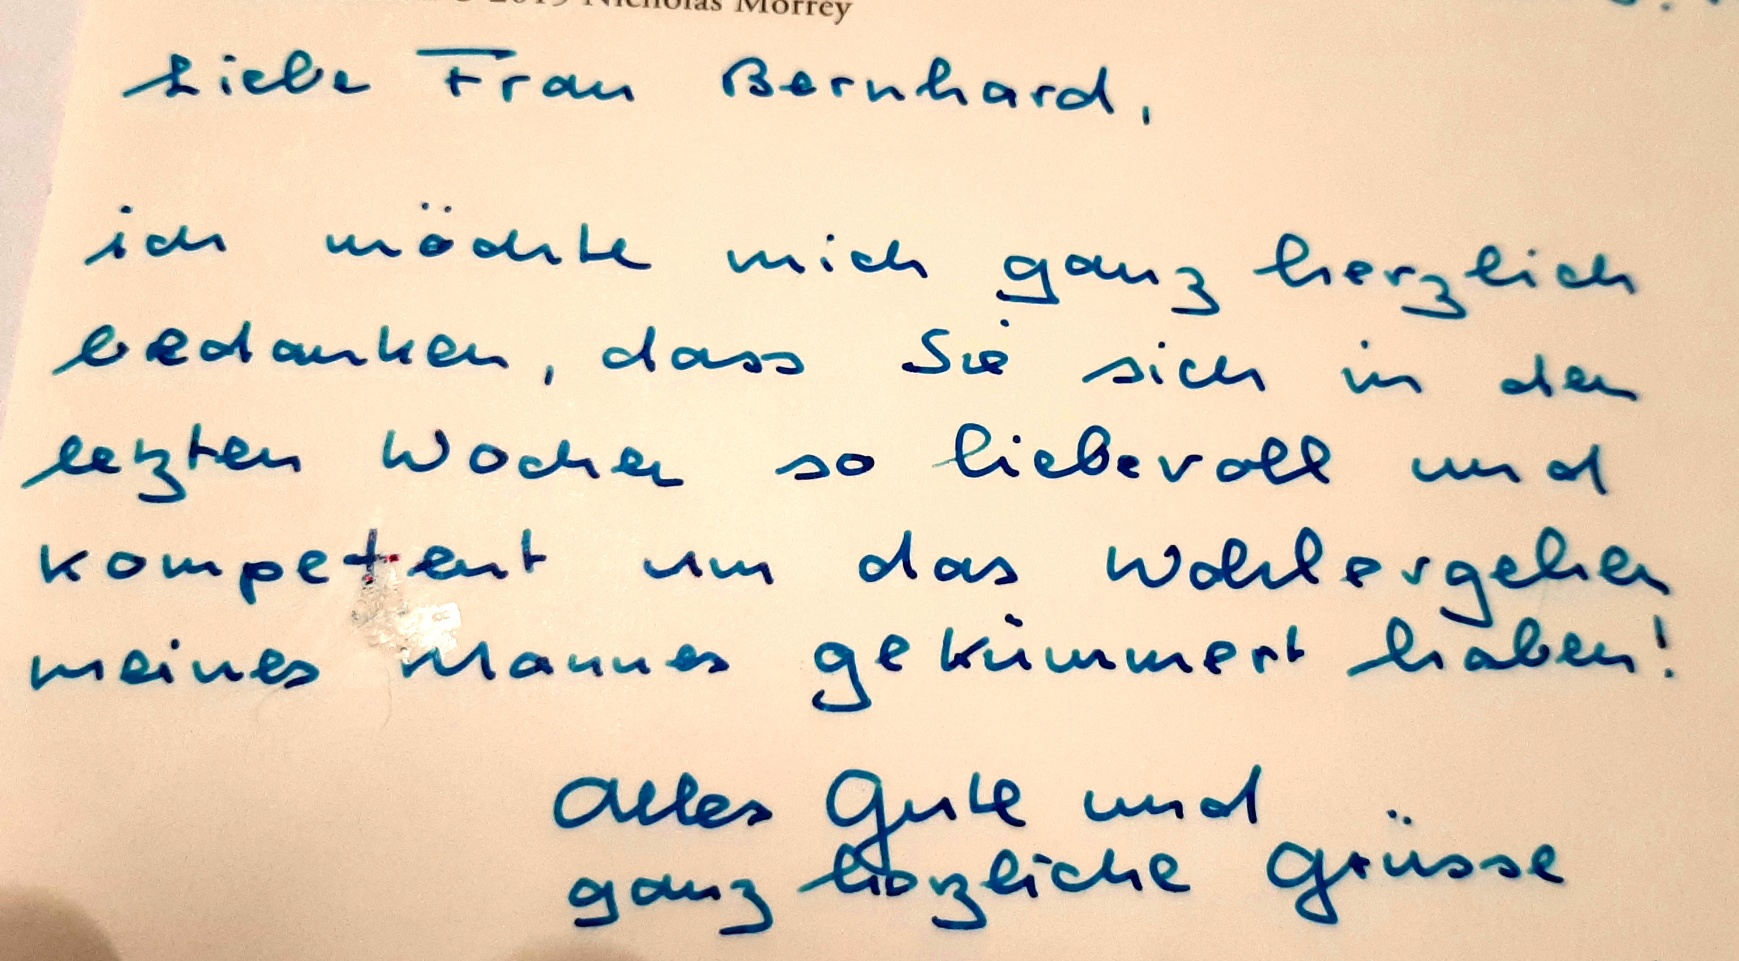 2019 Nicholas Morrey
Liebe Frau Bernhard,
ich möchte mich ganz herzlich
bedanken, dass Sie sich in den
letzten Wochen so liebevoll und
kompetent um das Wohlergehen
meines Mannes gekümmert haben!
Alles Gute und
ganz herzliche Grüsse